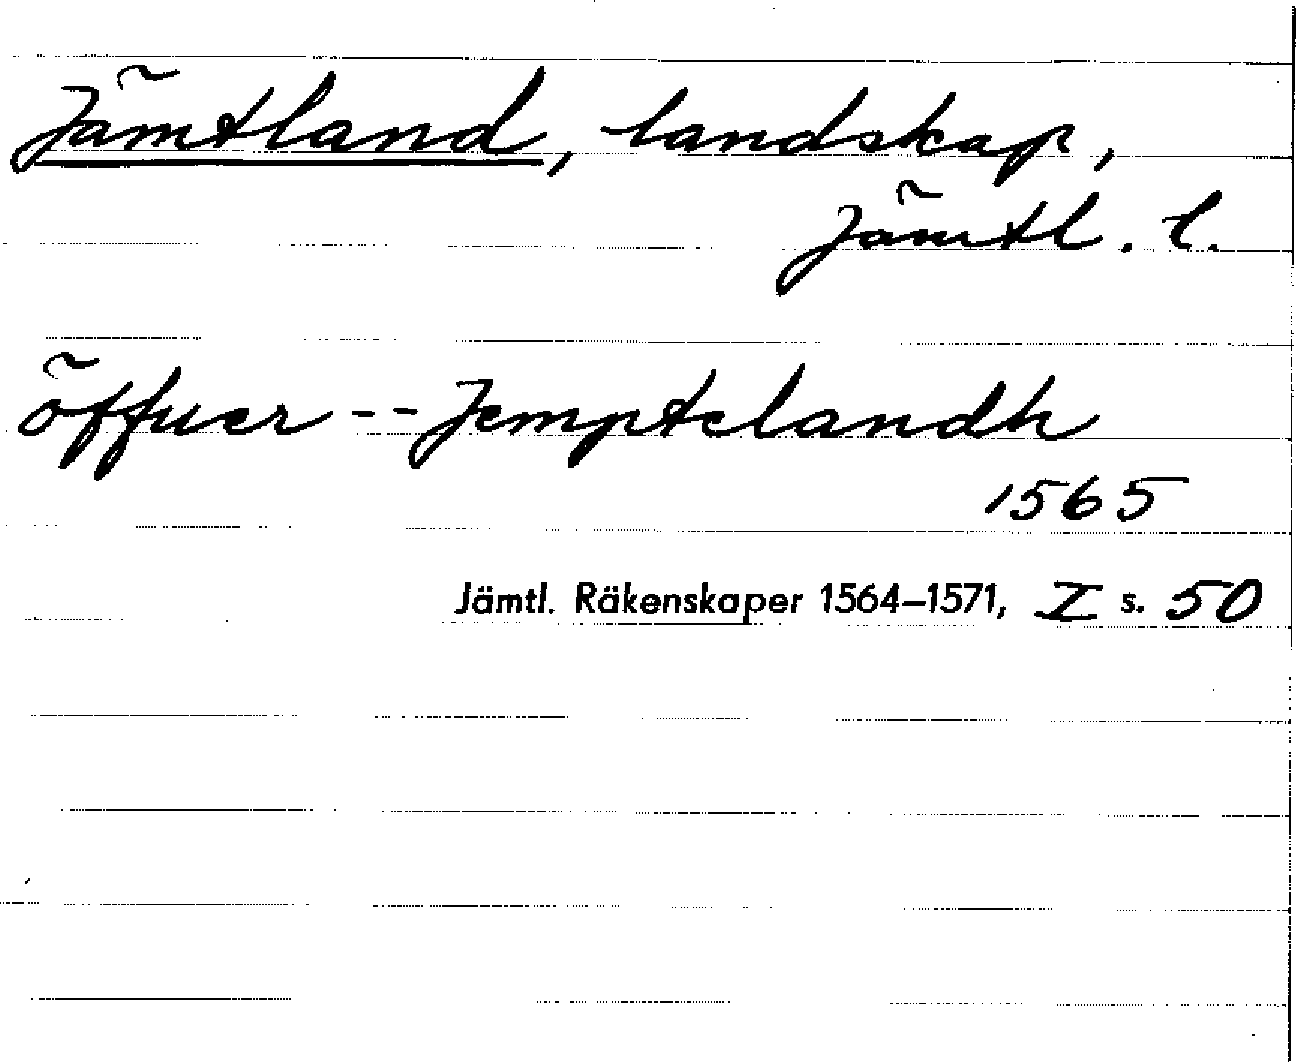 Jämtland, landskap,
Jämtl. l.
öffuer -- Jemptelandh
1565
Jämtl. Räkenskaper 1564–1571, I s. 50